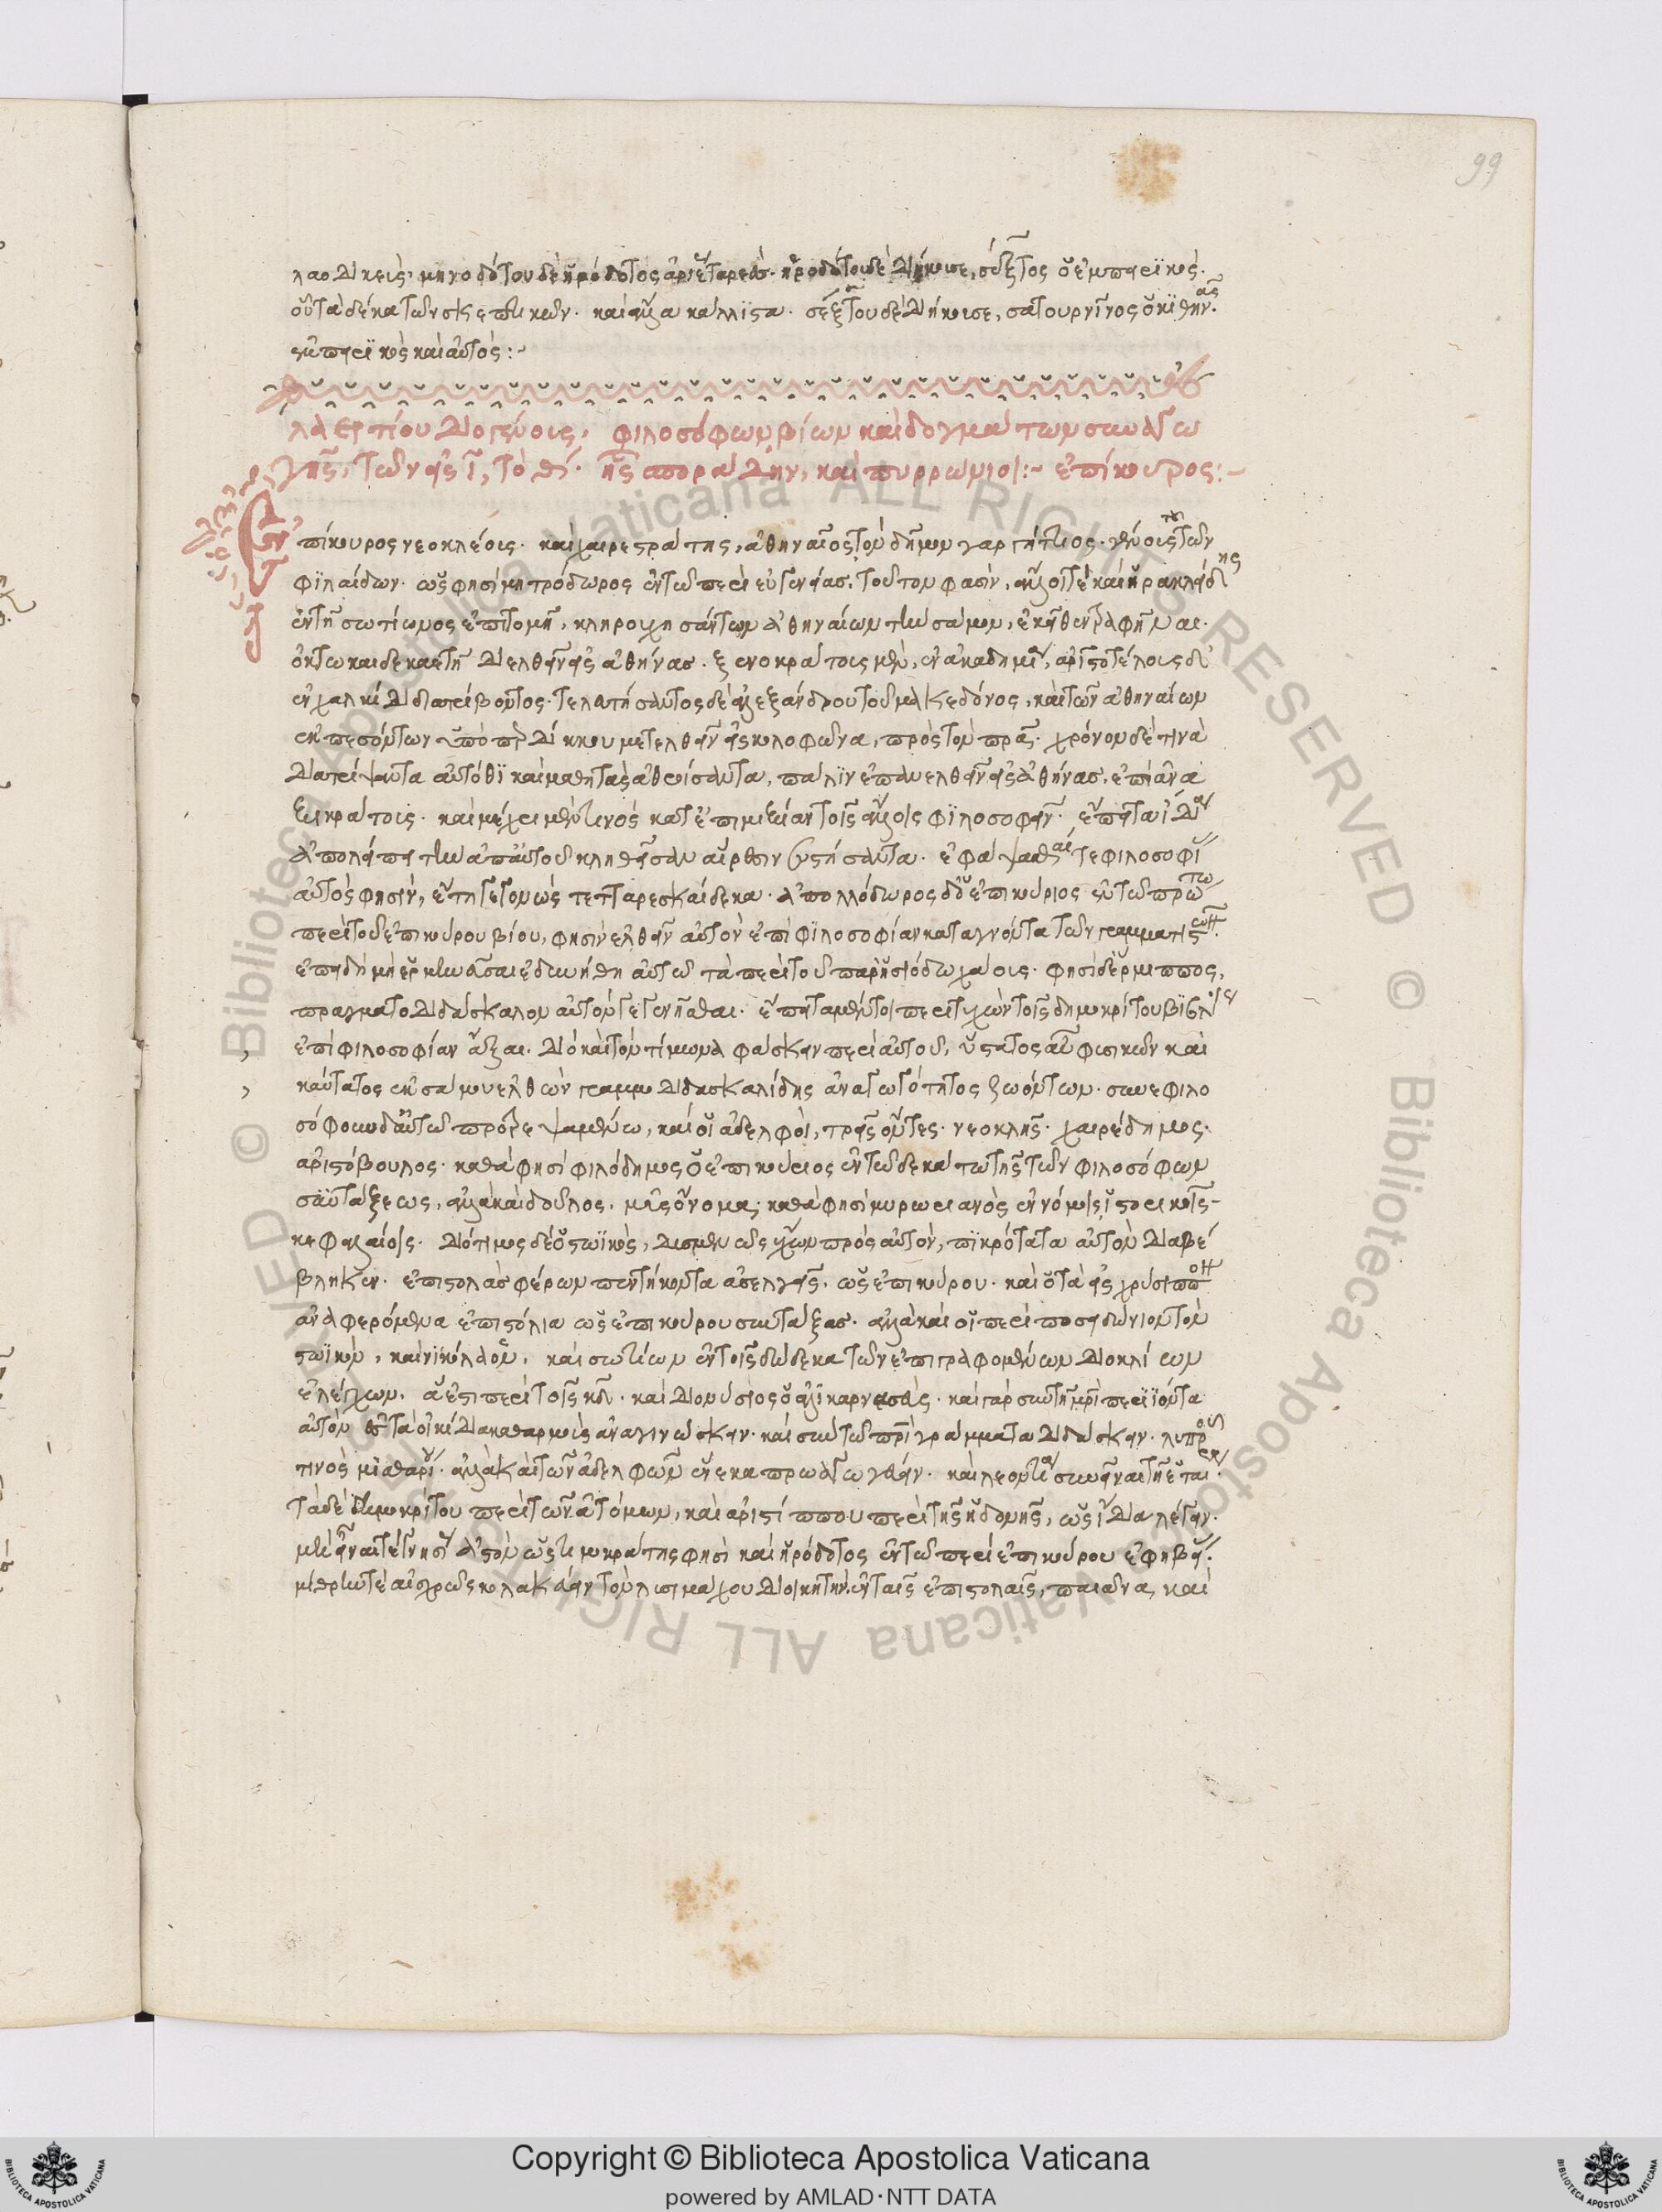 99
λαοδικεύς· μηνοδότου δὲ ἡρόδοτος ἀριέως ταρσεύς. ἡροδότου δὲ διήκουσε, σέξτος ὁ ἐμπειρικός.
οὗ τὰ δέκα τῶν σκεπτικῶν. καὶ ἄλλα κάλλιστα. σέξτου δὲ διήκουσε, σατουρνῖνος ὁ κυθηνᾶς.
ἐμπειρικὸς καὶ αὐτός:-
λαερτίου διογένους, φιλοσόφων βίων καὶ δογμάτων συναγω
γῆς, τῶν εἰς ῑ, τὸ θῑ. καὶ πυρρώνιοι:- ἐπίκουρος:-
Ἐπίκουρος νεοκλέους. καὶ χαιρεστράτης, ἀθηναῖος τὸν δῆμον γαργήττιος. γένους τοῦ τῶν
φιλαϊδῶν. ὥς φησι μητρόδωρος ἐν τῷ περὶ εὐγενείας. τοῦτόν φασιν, ἄλλοι τε καὶ ἡρακλείδης
ἐν τῇ σωτίωνος ἐπιτομῇ, κληρουχησάντων ἀθηναίων τὴν σάμον, ἐκεῖθεν τραφῆναι.
ὀκτωκαιδεκαέτη δὲ ἐλθεῖν εἰς ἀθήνας. ξενοκράτους μὲν, ἐν ἀκαδημίᾳ, ἀριστοτέλους δὲ
ἐν χαλκίδι διατρίβοντος. τελευτήσαντος δὲ ἀλεξάνδρου τοῦ μακεδόνος, καὶ τῶν ἀθηναίων
ἐκπεσόντων ὑπὸ περδίκκου μετελθεῖν εἰς κολοφῶνα, πρὸς τὸν πρα. χρόνον δέ τινα
διατρίψαντα αὐτόθι καὶ μαθητὰς ἀθροίσαντα, πάλιν ἐπανελθεῖν εἰς ἀθήνας, ἐπὶ ἀνα
ξικράτους. καὶ μέχρι μέν τινος κατ' ἐπιμιξίαν τοῖς ἄλλοις φιλοσοφεῖν. ἔπειτα ἰδίᾳ
ἀπὸ αὐτοῦ κληθεῖσαν αἵρεσιν συστήσαντα. ἐφάψασθαί τε φιλοσοφί
αὐτός φησιν, ἔτη γεγονὼς τετταρεσκαίδεκα. ἀπολλόδωρος δὲ ὁ ἐπικούριος ἐν τῷ πρώτῳ
περὶ τοῦ ἐπικούρου βίου, φησὶν ἐλθεῖν αὐτὸν ἐπὶ φιλοσοφίαν καταγνόντα τῶν γραμματιστῶν.
ἐπειδὴ μὴ ἑρμηνεῦσαι ἐδυνήθη αὐτῷ τὰ περὶ τοῦ παρ' ἡσιόδῳ χάους. φησὶ δὲ ἕρμιππος,
γραμματοδιδάσκαλον αὐτὸν γεγενῆσθαι. ἔπειτα μέντοι περιτυχὼν τοῖς δημοκρίτου βιβλίοις
ἐπὶ φιλοσοφίαν ἄξαι. διὸ καὶ τὸν τίμωνα φάσκειν περὶ αὐτοῦ, ὕστατος αὖ φυσικῶν καὶ
κύντατος ἐκ σάμου ἐλθὼν γραμμοδιδασκαλίδης ἀναγωγότητος ζωόντων. συνεφιλο
σόφουν δ' αὐτῷ προτρεψαμένῳ, καὶ οἱ ἀδελφοί, τρεῖς ὄντες. νεοκλῆς. χαιρέδημος.
ἀριστόβουλος. καθά φησι φιλόδημος ὁ ἐπικούριος ἐν τῷ δεκάτῳ τῆς τῶν φιλοσόφων
συντάξεως, ἀλλὰ καὶ δοῦλος, μῦς ὄνομα, καθά φησι μυρωνιανὸς ἐν ὁμοίοις ἱστορικοῖς
κεφαλαίοις. διότιμος δὲ ὁ στωϊκὸς, δυσμενῶς ἔχων πρὸς αὐτόν, πικρότατα αὐτὸν διαβέ
βληκεν. ἐπιστολὰς φέρων πεντήκοντα ἀσελγεῖς, ὡς ἐπικούρου. καὶ ὁ τὰ εἰς χρύσιππον
ἀναφερόμενα ἐπιστόλια ὡς ἐπικούρου συντάξας. ἀλλὰ καὶ οἱ περὶ ποσειδώνιον τὸν
στωϊκὸν, καὶ νικόλαος, καὶ σωτίων ἐν τοῖς δώδεκα τῶν ἐπιγραφομένων διοκλείων
ἐλέγχων, ἅ ἐστι περὶ τοῖς κδ. καὶ διονύσιος ὁ ἁλικαρνασεύς. καὶ γὰρ σὺν τῇ μητρὶ περιϊόντα
αὐτὸν ἐς τὰ οἰκίδια καθαρμοὺς ἀναγινώσκειν. καὶ σὺν τῷ πατρὶ γράμματα διδάσκειν. λυπροῦ
τινὸς μισθαρίου. ἀλλὰ καὶ τῶν ἀδελφῶν ἕνεκα προαγωγεύειν. καὶ λεοντίῳ συνεῖναι τῇ ἑταίρᾳ.
τὰ δὲ δημοκρίτου περὶ τῶν ἀτόμων, καὶ ἀριστίππου περὶ τῆς ἡδονῆς, ὡς ἴδια λέγειν.
μὴ εἶναί τε γνησίως ἀστὸν ὡς τιμοκράτης φησὶ καὶ ἡρόδοτος ἐν τῷ περὶ ἐπικούρου ἐφηβείας.
μιθρῆν τε αἰσχρῶς κολακεύειν τὸν λυσιμάχου διοικητὴν, ἐν ταῖς ἐπιστολαῖς, παιᾶνα, καὶ
Copyright © Biblioteca Apostolica Vaticana
powered by AMLAD·NTT DATA